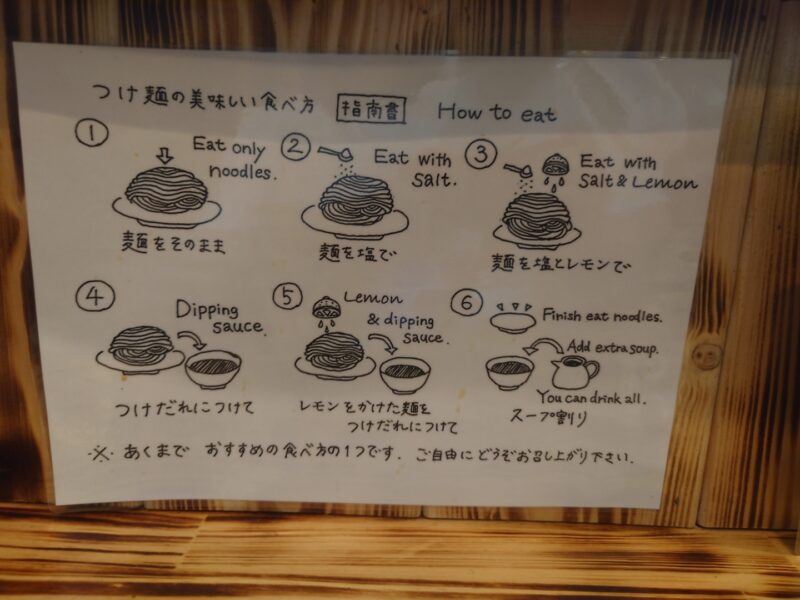 つけ麺の美味しい食べ方 指南書 How to eat
① Eat only
noodles.
麺をそのまま
② Eat with
Salt.
麺を塩で
③ Eat with
Salt & Lemon
麺を塩とレモンで
④ Dipping
sauce.
つけだれにつけて
⑤ Lemon
& dipping
sauce.
レモンをかけた麺を
つけだれにつけて
⑥ Finish eat noodles.
Add extra soup.
You can drink all.
スープ割り
※ あくまで おすすめの食べ方の1つです. ご自由にどうぞお召し上がり下さい.